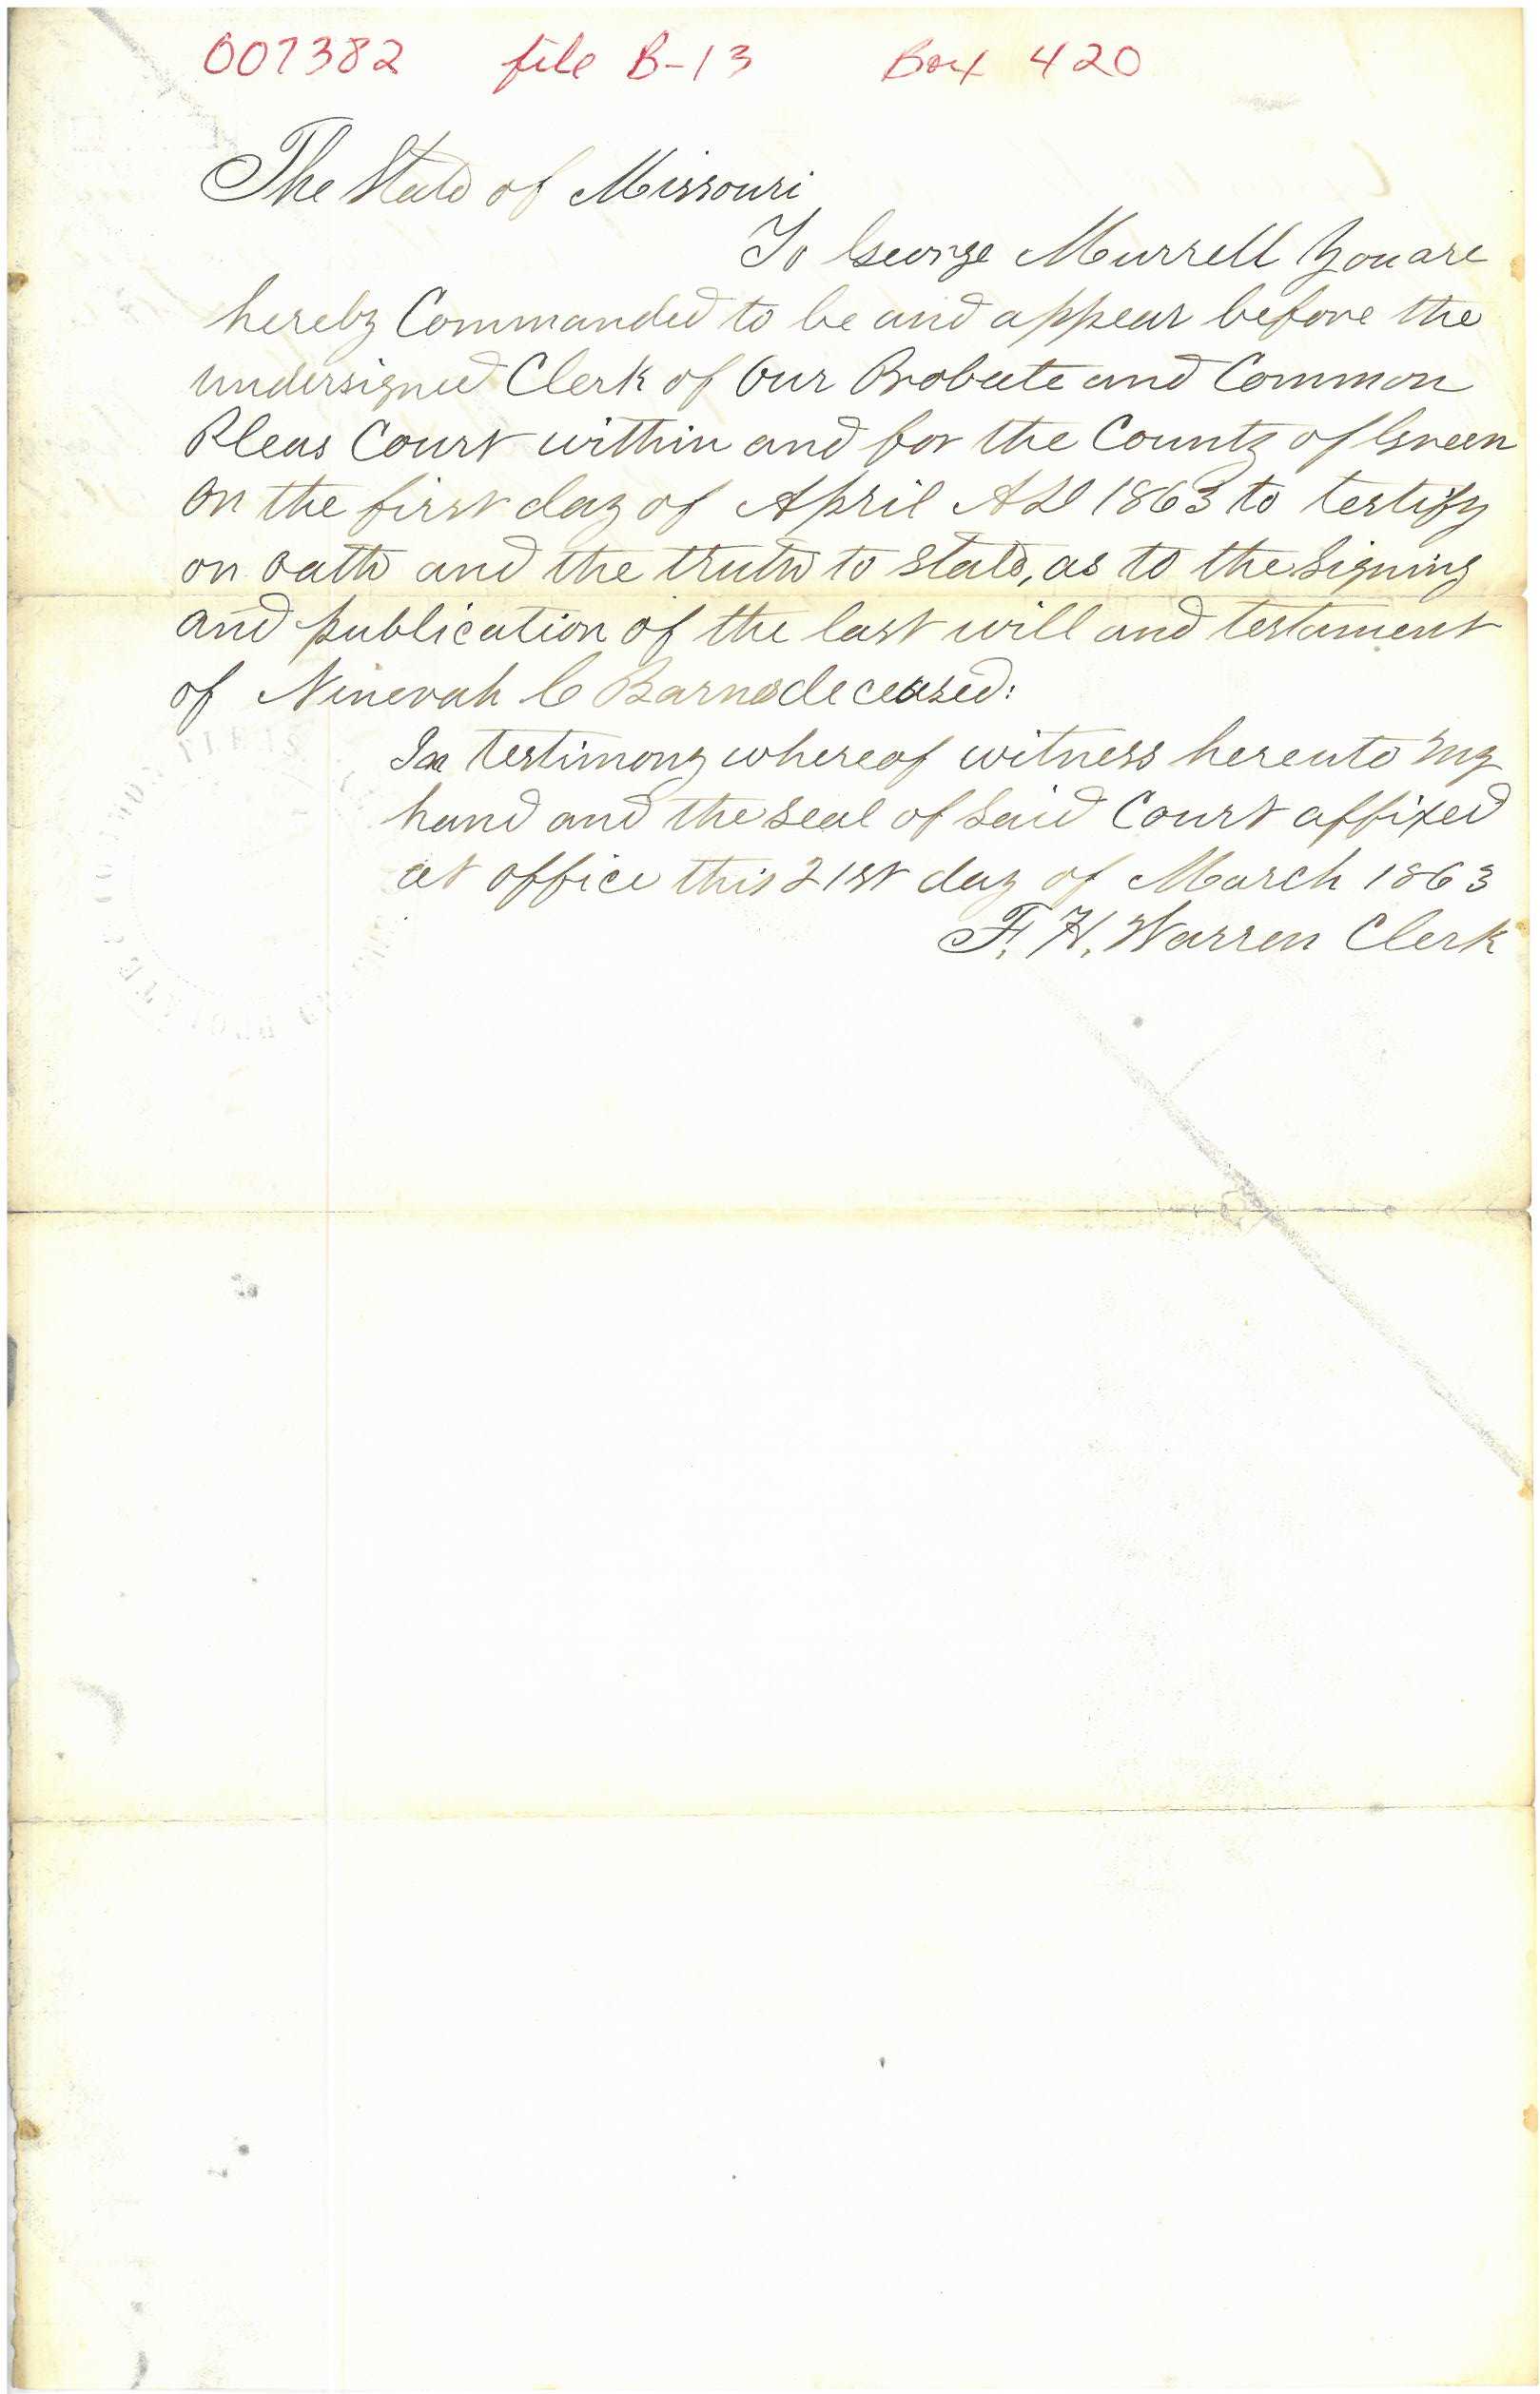 007382 file B-13 Box 420
The State of Missouri
To George Murrell You are
hereby Commanded to be and appear before the
undersigned Clerk of Our Probate and Common
Pleas Court within and for the County of Green
on the first day of April AD 1863 to testify
on oath and the truth to state, as to the signing
and publication of the last will and testament
of Ninevah C Barnes deceased:
In testimony whereof witness hereuto my
hand and the seal of said Court affixed
at office this 21st day of March 1863
F. H. Warren Clerk